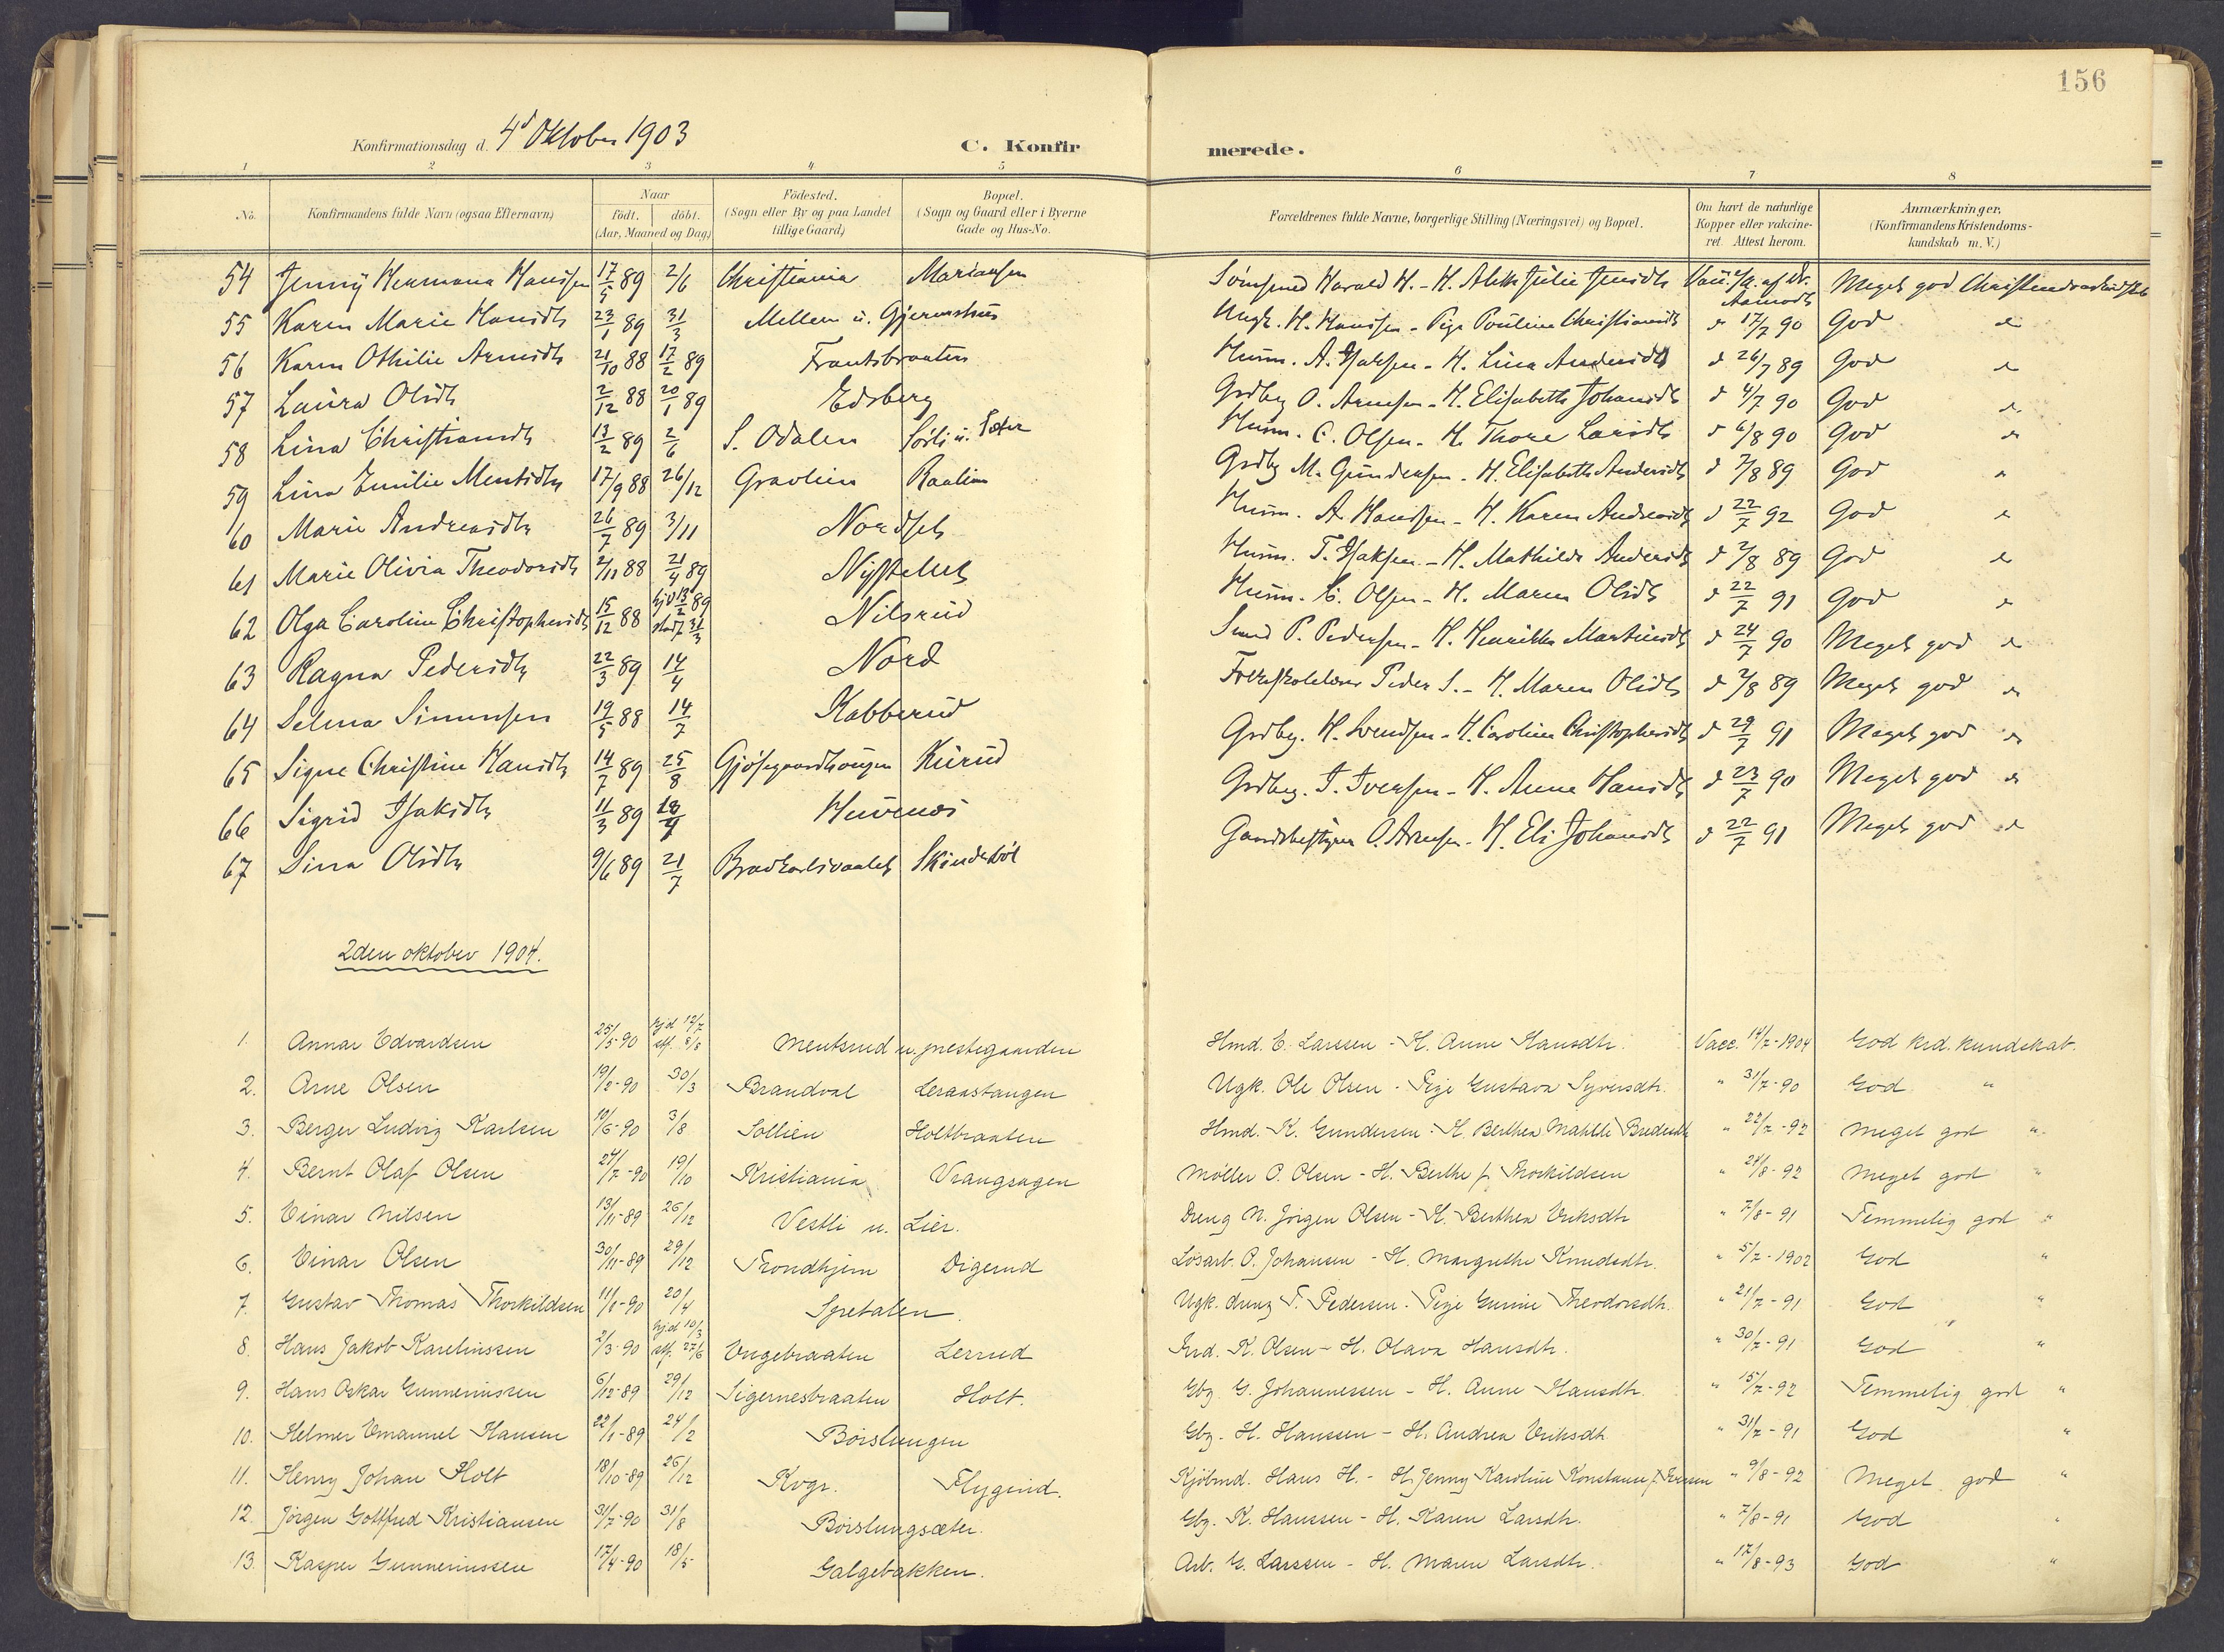 156
Konfirmationsdag d. 4d Oktober 1903
C. Konfirmerede.
1 2 3 4 5 6 7 8
No. Konfirmandens fulde Navn (ogsaa Efternavn) Naar födt. döbt. (Aar, Maaned og Dag) Födested. (Sogn eller By og paa Landet tillige Gaard) Bopæl. (Sogn og Gaard eller i Byerne Gade og Hus-No. Forældrenes fulde Navne, borgerlige Stilling (Næringsvei) og Bopæl. Om havt de naturlige Kopper eller vakcineret. Attest herom. Anmærkninger. (Konfirmandens Kristendomskundskab m. V.)
54 Jenny Hermana Hansen 17/5 89 2/6 Christiania Harald H. - H. Julie Meget god
55 Karen Marie Hansdtr 23/1 89 31/3 Mellem u. Gjermshus Ungk. H. Hansen - Pige Pauline Christiansdtr d 17/7 90 God
56 Karen Othilie Arnesdtr 21/10 88 17/2 89 Frantsbraaten Husm. A. Isaksen - H. Lina Andersdtr d 26/7 89 God
57 Laura Olsdtr 2/12 88 20/1 89 Edsberg Grdbg O. Arnesen - H. Elisabeth Johansdtr d 4/7 90 God
58 Lina Christiansdtr 13/2 89 2/6 S. Odalen Sörli u. Sæter Husm. C. Olsen - H. Thore Larsdtr d 6/8 90 God
59 Lina Emilie Mentsdtr 17/9 88 26/12 Gravlien Raalien Grdbg M. Gundersen - H. Elisabeth Andersdtr d 7/8 89 God
60 Marie Andreasdtr 26/7 89 3/11 Nordset Husm. A. Hansen - H. Karen Andreasdtr d 22/7 92 God
61 Marie Olivia Theodorsdtr 2/11 88 21/4 89 Husm. T. Isaksen - H. Mathilde Andersdtr d 7/8 89 God
62 Olga Caroline Christophersdtr 15/12 88 hjd 13/2 89 stadf 31/3 Nilsrud Husm. C. Olsen - H. Maren Olsdtr d 22/7 91 God
63 Ragna Pedersdtr 22/3 89 14/4 Nord Smed P. Pedersen - H. Henrikke Martinsdtr d 24/7 90 Meget god
64 Selma Simensen 19/5 88 14/7 Kabberud Peder S. - H. Maren Olsdtr d 7/8 89 Meget god
65 Signe Christine Hansdtr 14/7 89 25/8 Gjösegaardhaugen Kurud Grdbg. H. Svendsen - H. Caroline Christophersdtr d 29/7 91 Meget god
66 Sigrid Isaksdtr 11/3 89 Huvenes Grdbg. I. Iversen - H. Anne Hansdtr d 23/7 90 Meget god
67 Sina Olsdtr 9/6 89 21/7 Skinderböl Gaardsbestyrer O. Arnesen - H. Eli Johansdtr d 22/7 91 Meget god
2den oktober 1904.
1. Annar Edvardsen 25/5-90 hjd 12/7 stf. 8/8 Mentsrud u. prestegaarden Hmd. E. Larssen - H. Anne Hansdtr. Vacc. 14/7-1904 God krd. kundskab.
2. Arne Olsen 19/2-90 30/3 Brandval Leraastangen Ugk. Ole Olsen - Pige Gustava Syversdtr. " 31/7-90 God "
3. Berger Ludvig Karlsen 10/6-90 3/8 Sollien Holtbraaten Hmd. K. Gundersen - H. Berthea Mathilde " 22/7-92 Meget god "
4. Bernt Olaf Olsen 24/7-90 19/10 Kristiania Vrangsagen Möller O. Olsen - H. Berthe f. Thorkildsen " 24/8-92 Meget god "
5. Einar Nilsen 13/11-89 26/12 Vestli u. Lier. Dreng N. Jörgen Olsen - H. Berthea Eriksdtr " 7/8-91 Temmelig god "
6. Einar Olsen 30/11-89 29/12 Trondhjem Digerud Lösarb. O. Johansen - H. Margrethe Knudsdtr. " 5/7-1902 God "
7. Gustav Thomas Thorkildsen 11/1-90 20/4 Spetalen. Ugk. dreng T. Pedersen. Pige Gunine Theodorsdtr. " 21/7-91 God "
8. Hans Jakob Karelinssen 2/3-90 hjd 10/3 stf. 27/6 Engebraaten Lerrud K. Olsen - H. Olava Hansdtr. " 30/7-91 God "
9. Hans Oskar Gunnerinssen 6/12-89 29/12 Sigernesbraaten Holt. Gbg. G. Johannessen - H. Anne Hansdtr. " 15/7-92 Temmelig god "
10. Helmer Emanuel Hansen 22/1-89 24/2 Börslungen Gbg. H. Hanssen - H. Andrea Eriksdtr " 31/7-91 God "
11. Henry Johan Holt 18/10-89 26/12 Kvgr. Flygind. Kjöbmd. Hans H. - H. Jenny Karoline Konstance f. " 9/8-92 Meget god "
12. Jörgen Gottfred Kristiansen 31/7-90 31/8 Börslungsæter. Gbg. K. Hanssen - H. Karen Larsdtr. " 7/8-91 God "
13. Kasper Gunnerinssen 17/4-90 18/5 Galgebakken. Arb. G. Larssen - H. Maren Larsdtr. " 17/8-93 God "